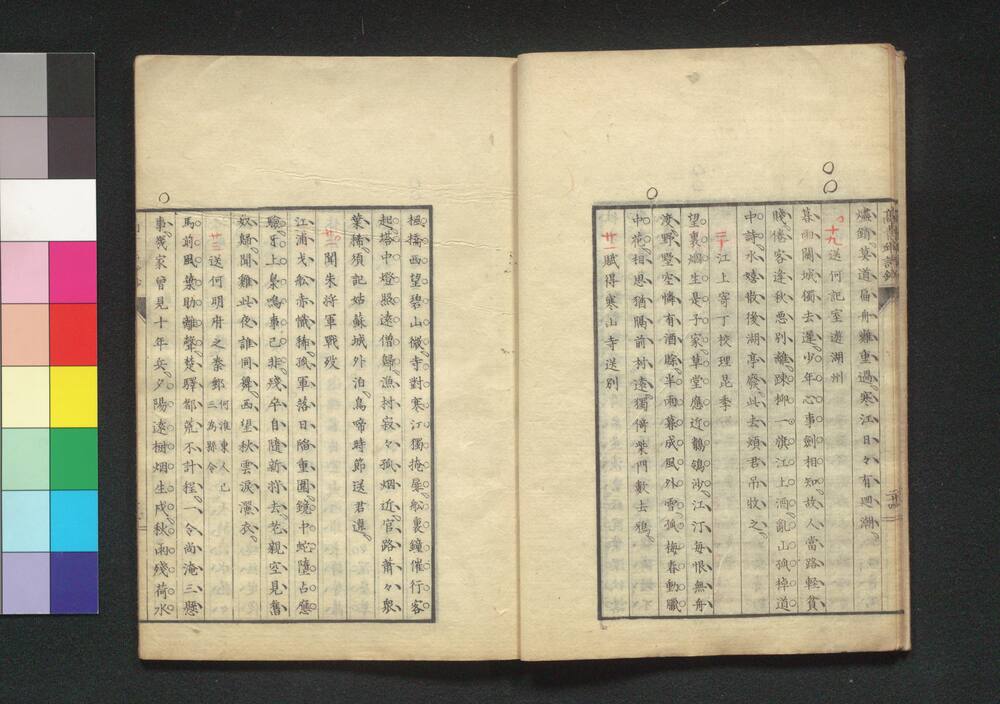 燐銷莫道扁舟難重過寒江日々有廻潮
十九
送何記室遊湖州
暮雨關城獨去遲少年心事劍相知故人當路輕貧
賤倦客逢秋惡別離踈柳一旗江上酒亂山孤棹道
中詩水嬉散後湖亭廢此去煩君吊牧之
二十
江上寄丁校理昆季
望裏烟生是子家草堂應近鶺鴒沙江汀每恨無舟
渡野墅空憐有酒賒半雨暮成風外雪孤梅春動臘
中花相思猶隔前村遠獨倚柴門數去鴉
廿一
賦得寒山寺送別
楓橋西望碧山微寺對寒江獨掩扉船裏鐘催行客
起塔中燈照遠僧歸漁村寂々孤烟近官路蕭々衆
葉稀須記姑蘇城外泊烏啼時節送君違
廿二
聞朱將軍戰歿
江浦戈船赤幟稀孤軍落日陷重圍鏡中蛇墮占應
驗牙上梟鳴事已非殘卒自隨新將去老親空見舊
奴歸聞雞此夜誰同舞西望秋雲淚灑衣
廿三
送何明府之秦郵
何淮東人已
三為縣令
馬前風葉助離聲楚驛都荒不計程一令尚淹三縣
事幾家曾見十年兵夕陽遠樹烟生戍秋雨殘荷水